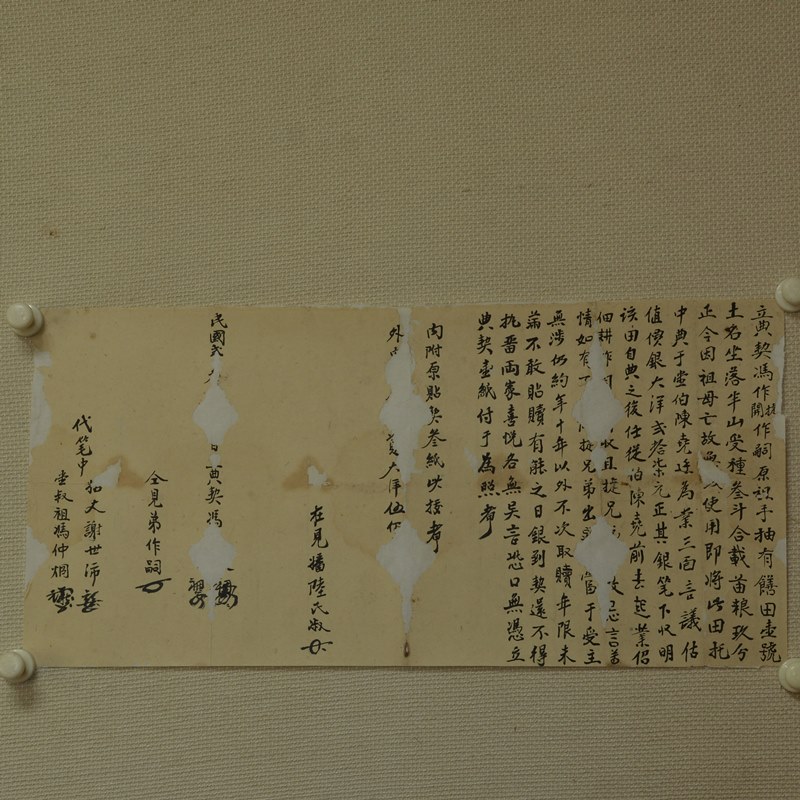 立典契馮作開捷作嗣原祖手抽有饍田壹號
土名坐落半山受種叁斗合載苗粮玖分
正今因祖母亡故使用即將此田托
中典于堂伯陳堯廷為業三面言議估
值價銀大洋弍拾柒元正其銀笔下收明
該田自典之後任從伯陳堯前去起業侶
佃耕作收且捷兄故忌言若
情如有捷兄弟出當于受主
無涉仍約年十年以外不次取贖年限未
滿不敢貼贖有能之日銀到契還不得
执畱両家喜悦各無吴言恐口無憑立
典契壹紙付于為照者
內附原貼契叁紙此接者
外大洋伍
在見嬸陸氏淑
民國日典契馮
仝見弟作嗣
代笔中知大謝世沛
堂叔祖馮仲烱